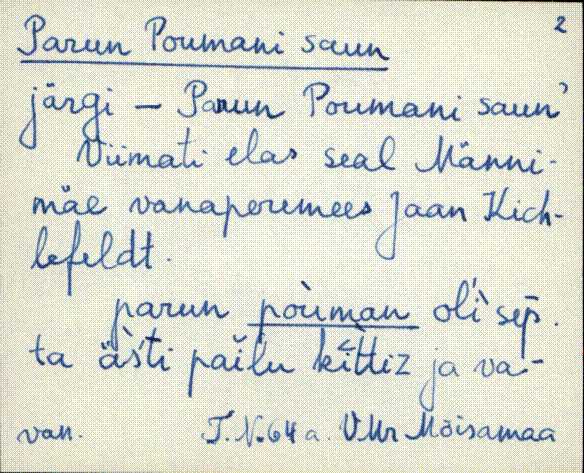 2
Parun Poumani saun
järgi — Parun Poumani saun'
Viimati elas seal Männi-
mäe vanaperemees Jaan Kich-
lefeldt.
parun pòuman oli sep̄.
ta ästi pailu kittiz ja va-
van. T.N. 64 a. VMr Mõisamaa